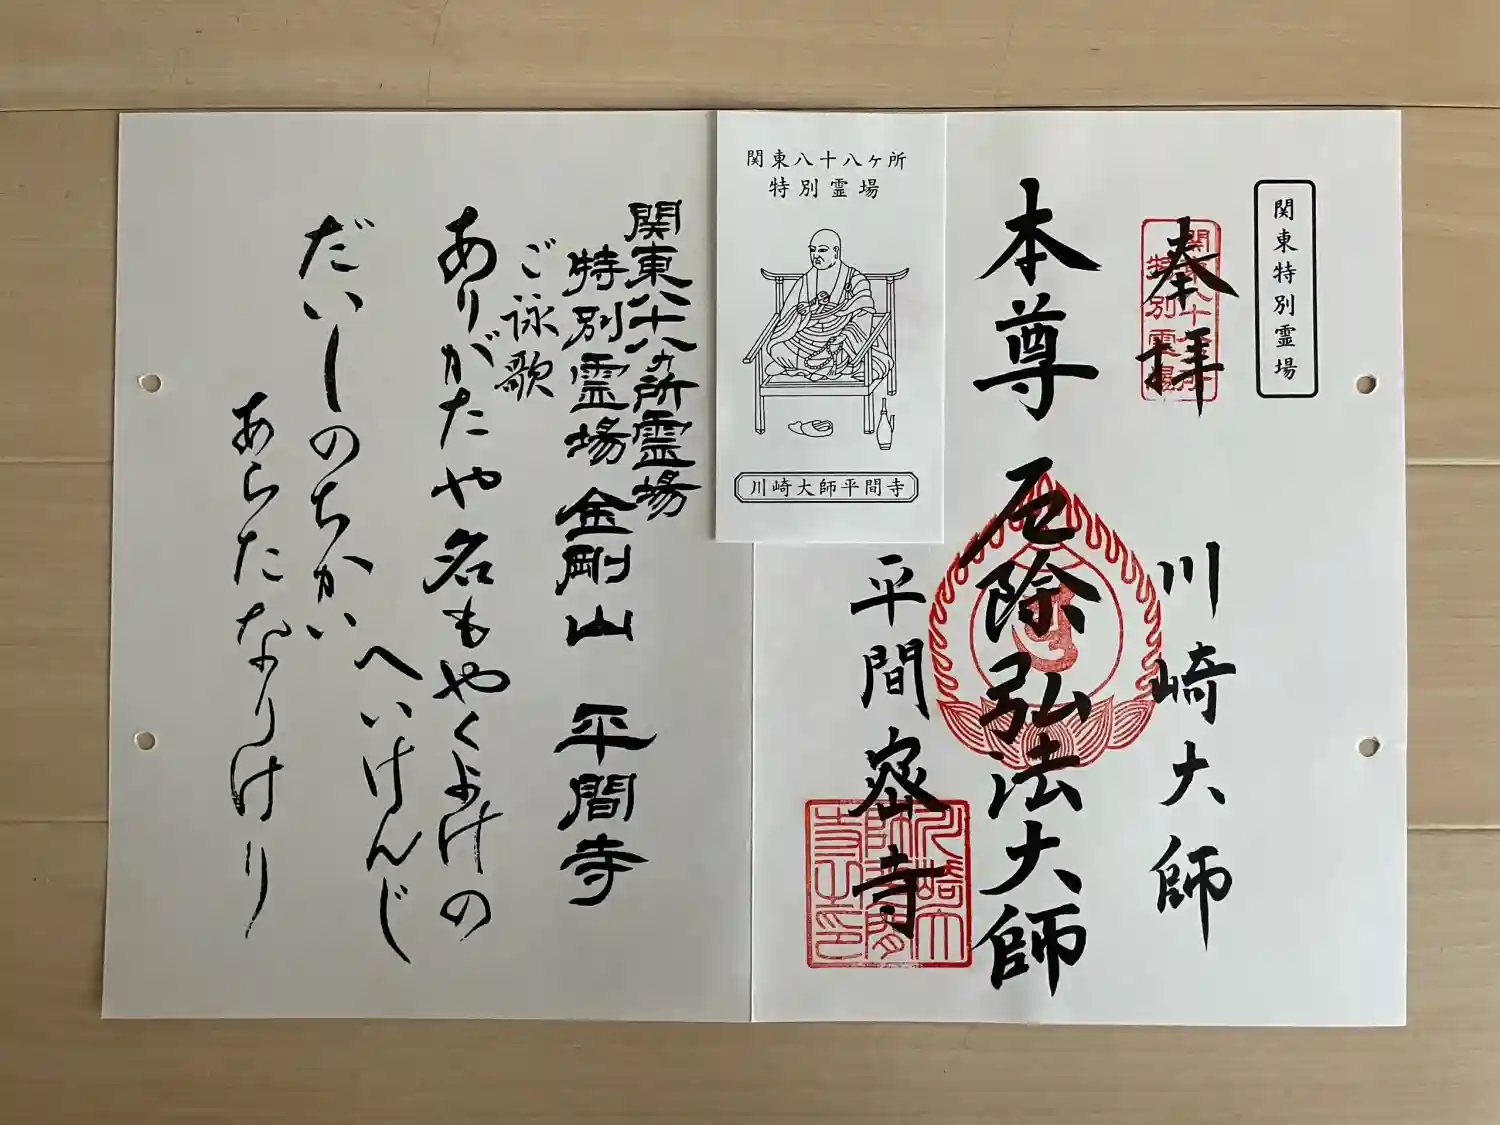 関東特別霊場
奉拝
関東八十八ヶ所
特別霊場
川崎大師
本尊 厄除弘法大師
平間寺
関東八十八ヶ所
特別霊場
川崎大師平間寺
関東八十八ヵ所霊場
特別霊場 金剛山 平間寺
ご詠歌
ありがたや名もやくよけの
へいけんじ
だいしのちかい
あらたなりけり